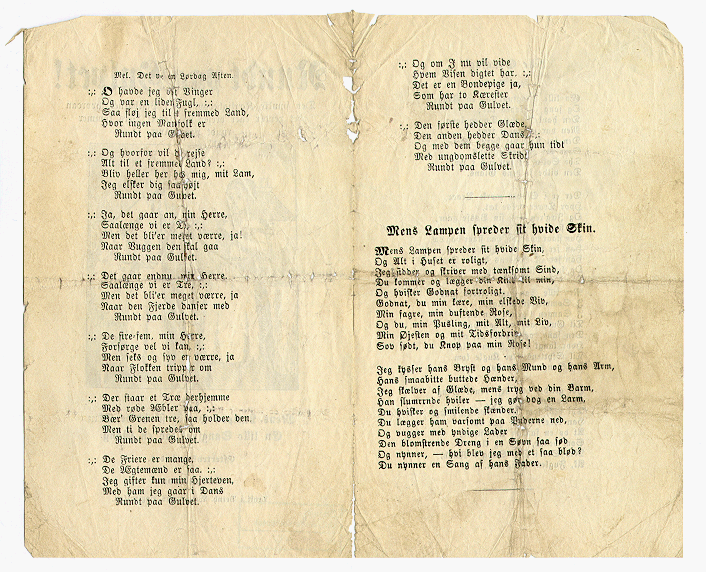 Mel. Det var en Lørdag Aften.
:,: O havde jeg to Vinger
Og var en liden Fugl, :,:
Saa fløj jeg til et fremmed Land,
Hvor ingen Mandfolk er
Rundt paa Gulvet.
:,: Og hvorfor vil du rejse
Alt til et fremmed Land? :,:
Bliv heller her hos mig, mit Lam,
Jeg elsker dig saa højt
Rundt paa Gulvet.
:,: Ja, det gaar an, min Herre,
Saalænge vi er To, :,:
Men det bli'er meget værre, ja!
Naar Vuggen den skal gaa
Rundt paa Gulvet.
:,: Det gaar endnu, min Herre,
Saalænge vi er Tre, :,:
Men det bli'er meget værre, ja
Naar den Fjerde danser med
Rundt paa Gulvet.
:,: De fire-fem, min Herre,
Forsørge vel vi kan, :,:
Men seks og syv er værre, ja
Naar Flokken tripper om
Rundt paa Gulvet.
:,: Der staar et Træ derhjemme
Med røde Æbler paa, :,:
Bær' Grenen tre, saa holder den
Men ti de spredes om
Rundt paa Gulvet.
:,: De Friere er mange,
De Ægtemænd er faa. :,:
Jeg gifter kun min Hjerteven,
Med ham jeg gaar i Dans
Rundt paa Gulvet.
:,: Og om I nu vil vide
Hvem Visen digtet har. :,:
Det er en Bondepige ja,
Som har to Kærester
Rundt paa Gulvet.
:,: Den første hedder Glæde,
Den anden hedder Dans, :,:
Og med dem begge gaar hun tidt
Med ungdomslette Skridt
Rundt paa Gulvet.
Mens Lampen spreder sit hvide Skin.
Mens Lampen spreder sit hvide Skin,
Og Alt i Huset er roligt,
Jeg sidder og skriver med tænksomt Sind,
Du kommer og lægger din Kind til min,
Og hvisker Godnat fortroligt.
Godnat, du min kære, min elskede Viv,
Min fagre, min duftende Rose,
Og du, min Pusling, mit Alt, mit Liv,
Min Øjesten og mit Tidsfordriv,
Sov sødt, du Knop paa min Rose!
Jeg kysser hans Bryst og hans Mund og hans Arm,
Hans smaabitte buttede Hænder,
Jeg skælver af Glæde, mens tryg ved din Barm,
Han slumrende hviler — jeg gør dog en Larm,
Du hvisker og smilende skænder.
Du lægger ham varsomt paa Puderne ned,
Og vugger med yndige Lader
Den blomstrende Dreng i en Søvn saa sød
Og nynner, — hvi blev jeg med et saa blød?
Du nynner en Sang af hans Fader.